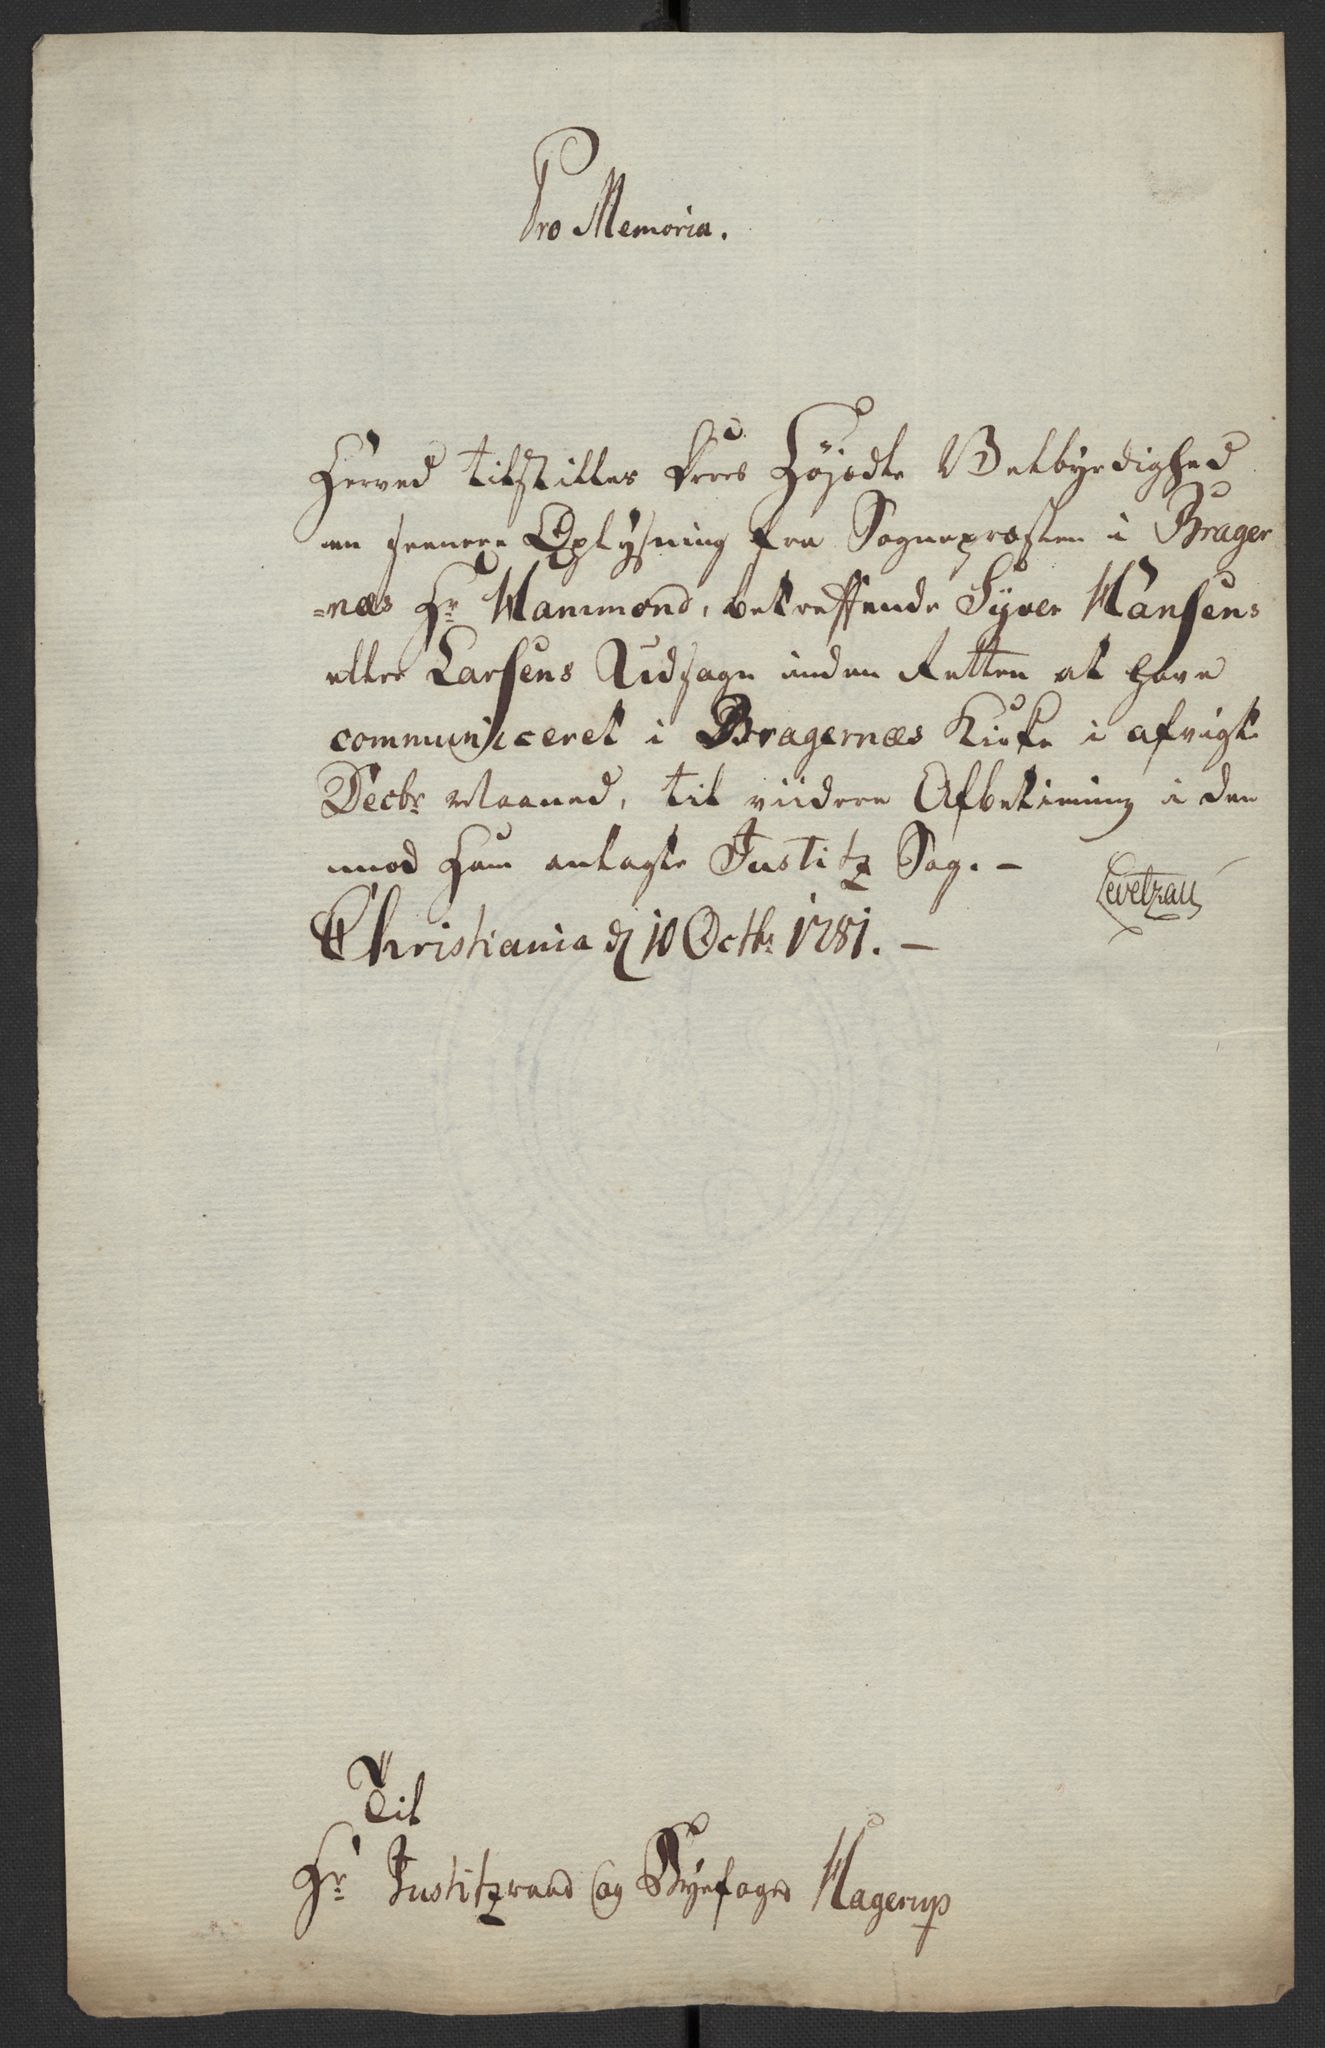 Pro Memoria.
Herved tilstilles Deres Højædle Velbyrdighed
en seenere Oplysning fra Sognepræsten i Brager
=næs Hr Hammond, betreffende Syver Hansens
eller Larsens Udsagn inden Retten at have
communiceret i Bragernæs Kirke i afvigte
Decbr Maaned, til viidere Afbetiening i den
mod Ham anlagte Justitz Sag. —
Levetzau
Christiania d 10 Octbr 1781. —
Til
Hr Justitzraad og Byefoged Hagerup